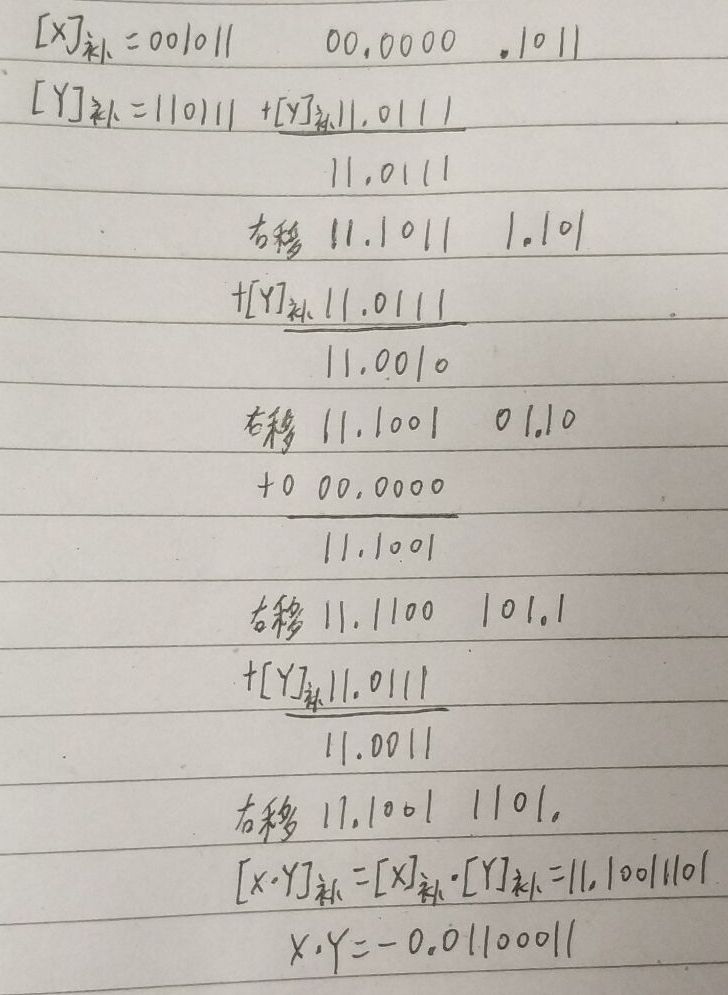 [X]补=001011 00.0000 .1011
[Y]补=110111 +[Y]补11.0111
11.0111
右移 11.1011 1.101
+[Y]补11.0111
11.0010
右移 11.1001 01.10
+0 00.0000
11.1001
右移 11.1100 101.1
+[Y]补11.0111
11.0011
右移 11.1001 1101.
[X·Y]补=[X]补·[Y]补=11.10011101
X·Y=-0.01100011